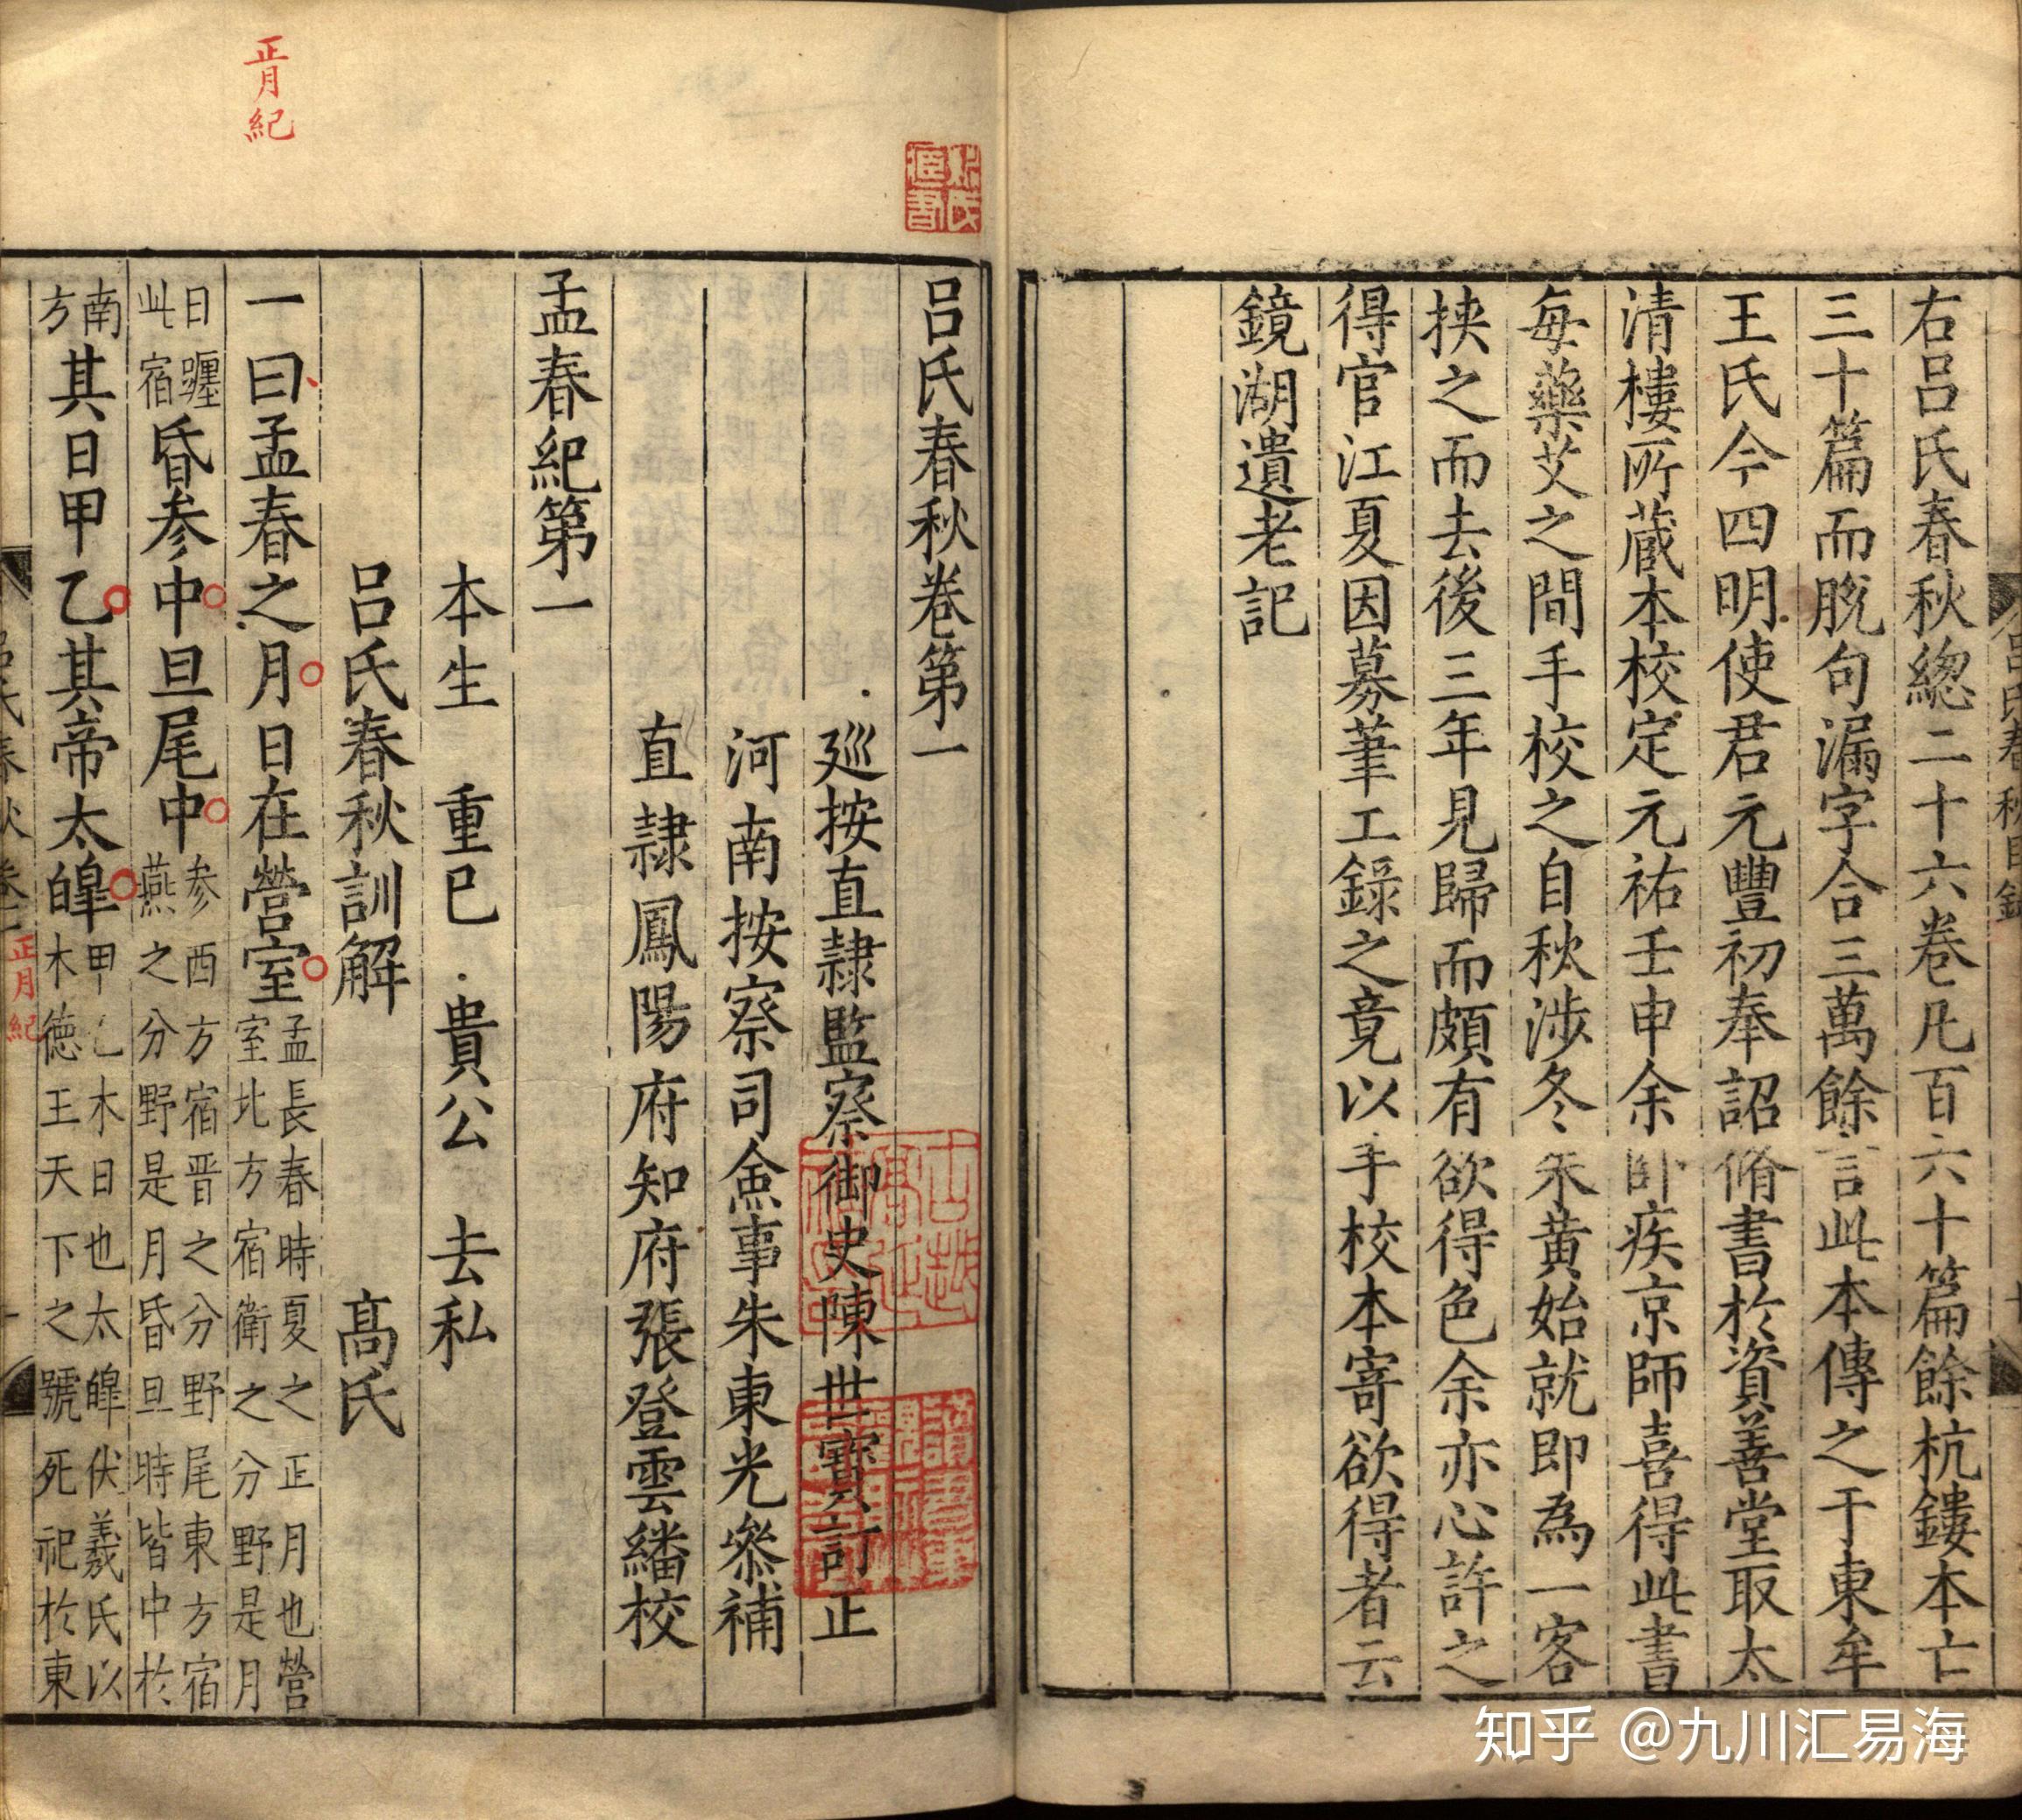 右呂氏春秋總二十六卷凡百六十篇餘杭鏤本亡
三十篇而脫句漏字合三萬餘言此本傳之于東牟
王氏今四明使君元豐初奉詔脩書於資善堂取太
清樓所藏本校定元祐壬申余卧疾京師喜得此書
每藥艾之間手校之自秋涉冬朱黃始就即為一客
挾之而去後三年見歸而頗有欲得色余亦心許之
得官江夏因募筆工錄之竟以手校本寄欲得者云
鏡湖遺老記
呂氏春秋卷第一
廵按直隷監察御史陳世寶訂正
河南按察司僉事朱東光參補
直隷鳳陽府知府張登雲繙校
孟春紀第一
本生 重巳 貴公 去私
呂氏春秋訓解 高氏
一曰孟春之月日在營室孟長春時夏之正月也營室北方宿衛之分野是月
日躔此宿昏参中旦尾中参西方宿晋之分野尾東方宿燕之分野是月昏旦時皆中於
南方其日甲乙其帝太皥甲乙木日也太皥伏羲氏以木德王天下之號死祀於東
正月紀
正月紀
呂氏春秋目錄
知乎 @九川汇易海